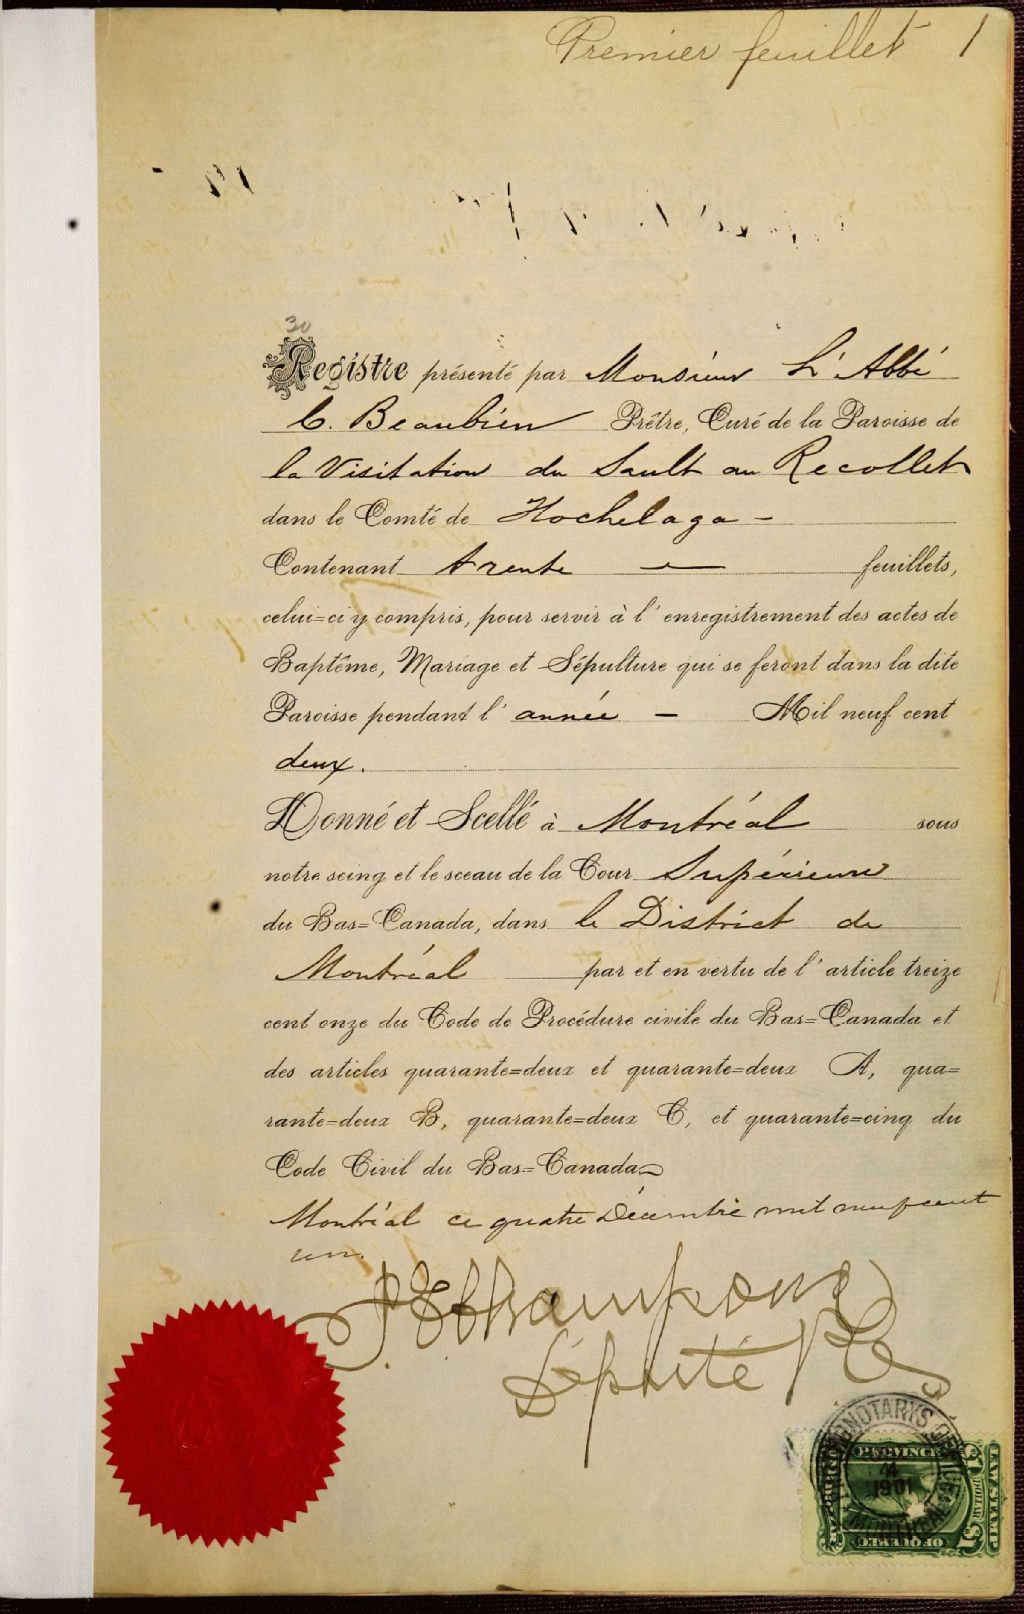 Premier feuillet 1
30
Registre présenté par Monsieur L'Abbé
C. Beaubien Prêtre, Curé de la Paroisse de
la Visitation du Sault au Recollet
dans le Comté de Hochelaga -
Contenant trente — feuillets,
celui=ci y compris, pour servir à l'enregistrement des actes de
Baptême, Mariage et Sépulture qui se feront dans la dite
Paroisse pendant l'année - Mil neuf cent
deux.
Donné et Scellé à Montréal sous
notre seing et le sceau de la Cour Supérieure
du Bas=Canada, dans le District de
Montréal par et en vertu de l'article treize
cent onze du Code de Procédure civile du Bas=Canada et
des articles quarante=deux et quarante=deux A, qua=
rante=deux B, quarante=deux C, et quarante=cinq du
Code Civil du Bas=Canada
Montréal ce quatre Décembre mil neuf cent
un.
Député
PROTHONOTARYS OFFICE
4
1901
MONTREAL
PROVINCE
OF QUEBEC
LAW STAMP
$1 DOLLAR $1